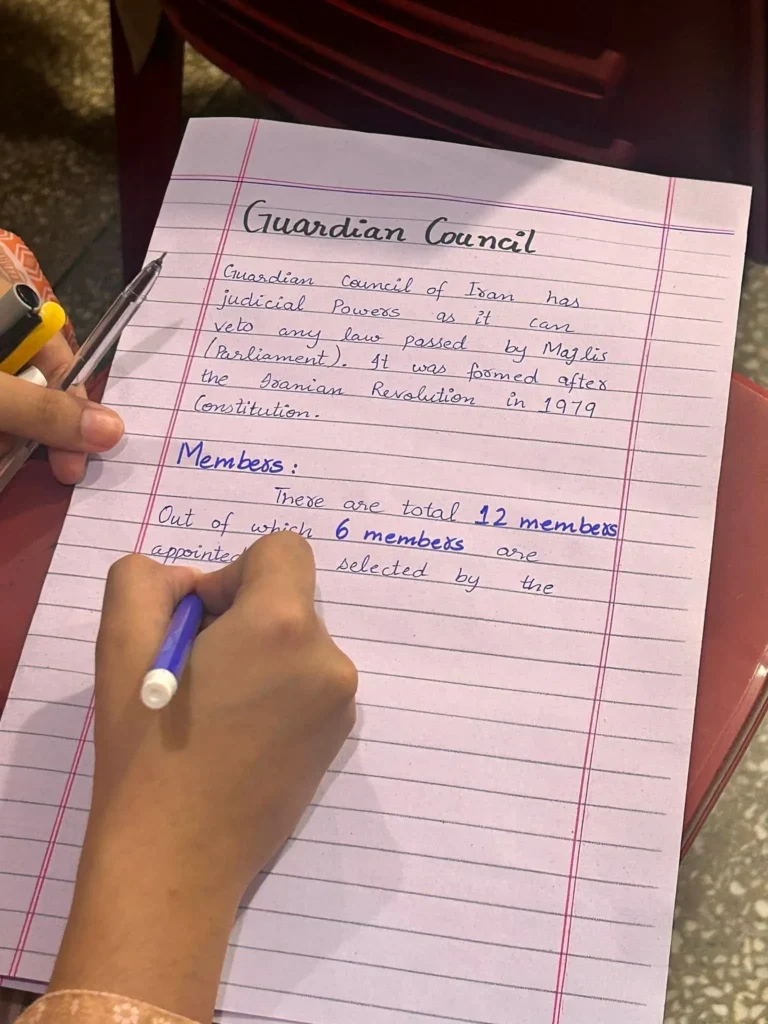 Guardian Council
Guardian Council of Iran has
judicial Powers as it can
veto any law passed by Majlis
(Parliament). It was formed after
the Iranian Revolution in 1979
Constitution.
Members:
There are total 12 members
Out of which 6 members are
appointed selected by the